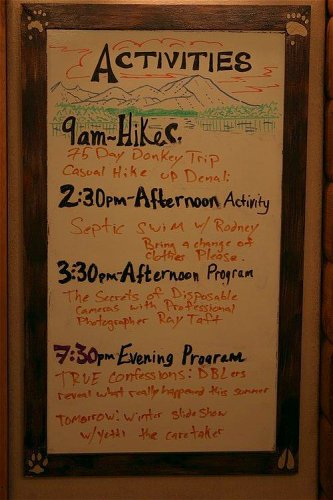 ACTIVITIES
9am-Hikes
75 Day Donkey Trip
Casual Hike up Denali
2:30pm-Afternoon Activity
Septic swim w/ Rodney
Bring a change of
clothes Please.
3:30pm-Afternoon Program
The Secrets of Disposable
Cameras with Professional
Photographer Ray Taft
7:30pm Evening Program
TRUE confessions: DBLers
reveal what really happened this summer
Tomorrow: Winter Slide Show
w/Yetti the caretaker